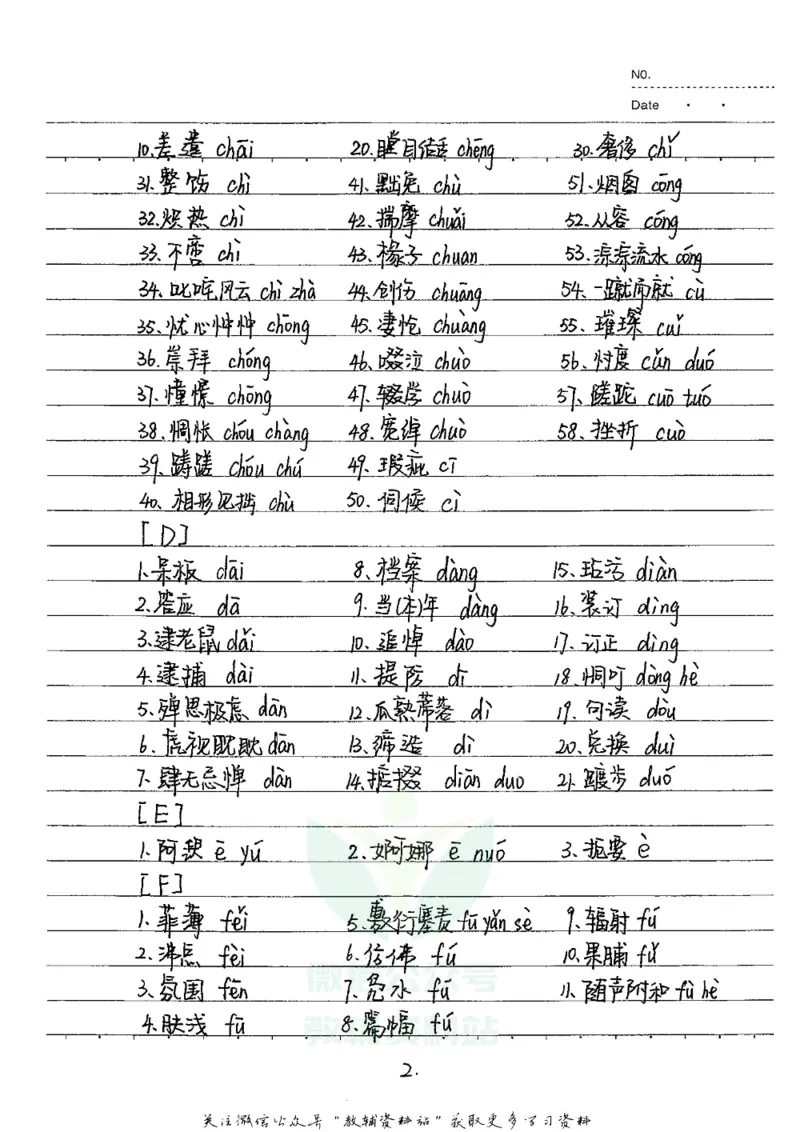 NO.
Date
10.差遣 chāi 20.瞠目结舌 chēng 30.奢侈 chǐ
31.整饬 chì 41.黜免 chù 51.烟囱 cōng
32.炽热 chì 42.揣摩 chuǎi 52.从容 cóng
33.不啻 chì 43.椽子 chuan 53.淙淙流水 cóng
34.叱咤风云 chì zhà 44.创伤 chuāng 54.一蹴而就 cù
35.忧心忡忡 chōng 45.凄怆 chuàng 55.璀璨 cuǐ
36.崇拜 chóng 46.啜泣 chuò 56.忖度 cǔn duó
37.憧憬 chōng 47.辍学 chuò 57.蹉跎 cuō tuó
38.惆怅 chóu chàng 48.宽绰 chuò 58.挫折 cuò
39.踌躇 chóu chú 49.瑕疵 cī
40.相形见拙 chù 50.伺候 cì
[D]
1.呆板 dāi 8.档案 dàng 15.玷污 diàn
2.答应 dā 9.当(本)年 dàng 16.装订 dìng
3.逮老鼠 dǎi 10.追悼 dào 17.订正 dìng
4.逮捕 dài 11.提防 dī 18.恫吓 dòng hè
5.殚思极虑 dān 12.瓜熟蒂落 dì 19.句读 dòu
6.虎视眈眈 dān 13.缔造 dì 20.兑换 duì
7.肆无忌惮 dàn 14.掂掇 diān duo 21.踱步 duó
[E]
1.阿谀 ē yú 2.婀娜 ē nuó 3.扼要 è
[F]
1.菲薄 fěi 5.敷衍塞责 fū yǎn sè 9.辐射 fú
2.沸点 fèi 6.仿佛 fú 10.果脯 fǔ
3.氛围 fēn 7.凫水 fú 11.随声附和 fù hè
4.肤浅 fū 8.篇幅 fú
微信公众号
教辅资料站
2.
关注微信公众号"教辅资料站"获取更多学习资料